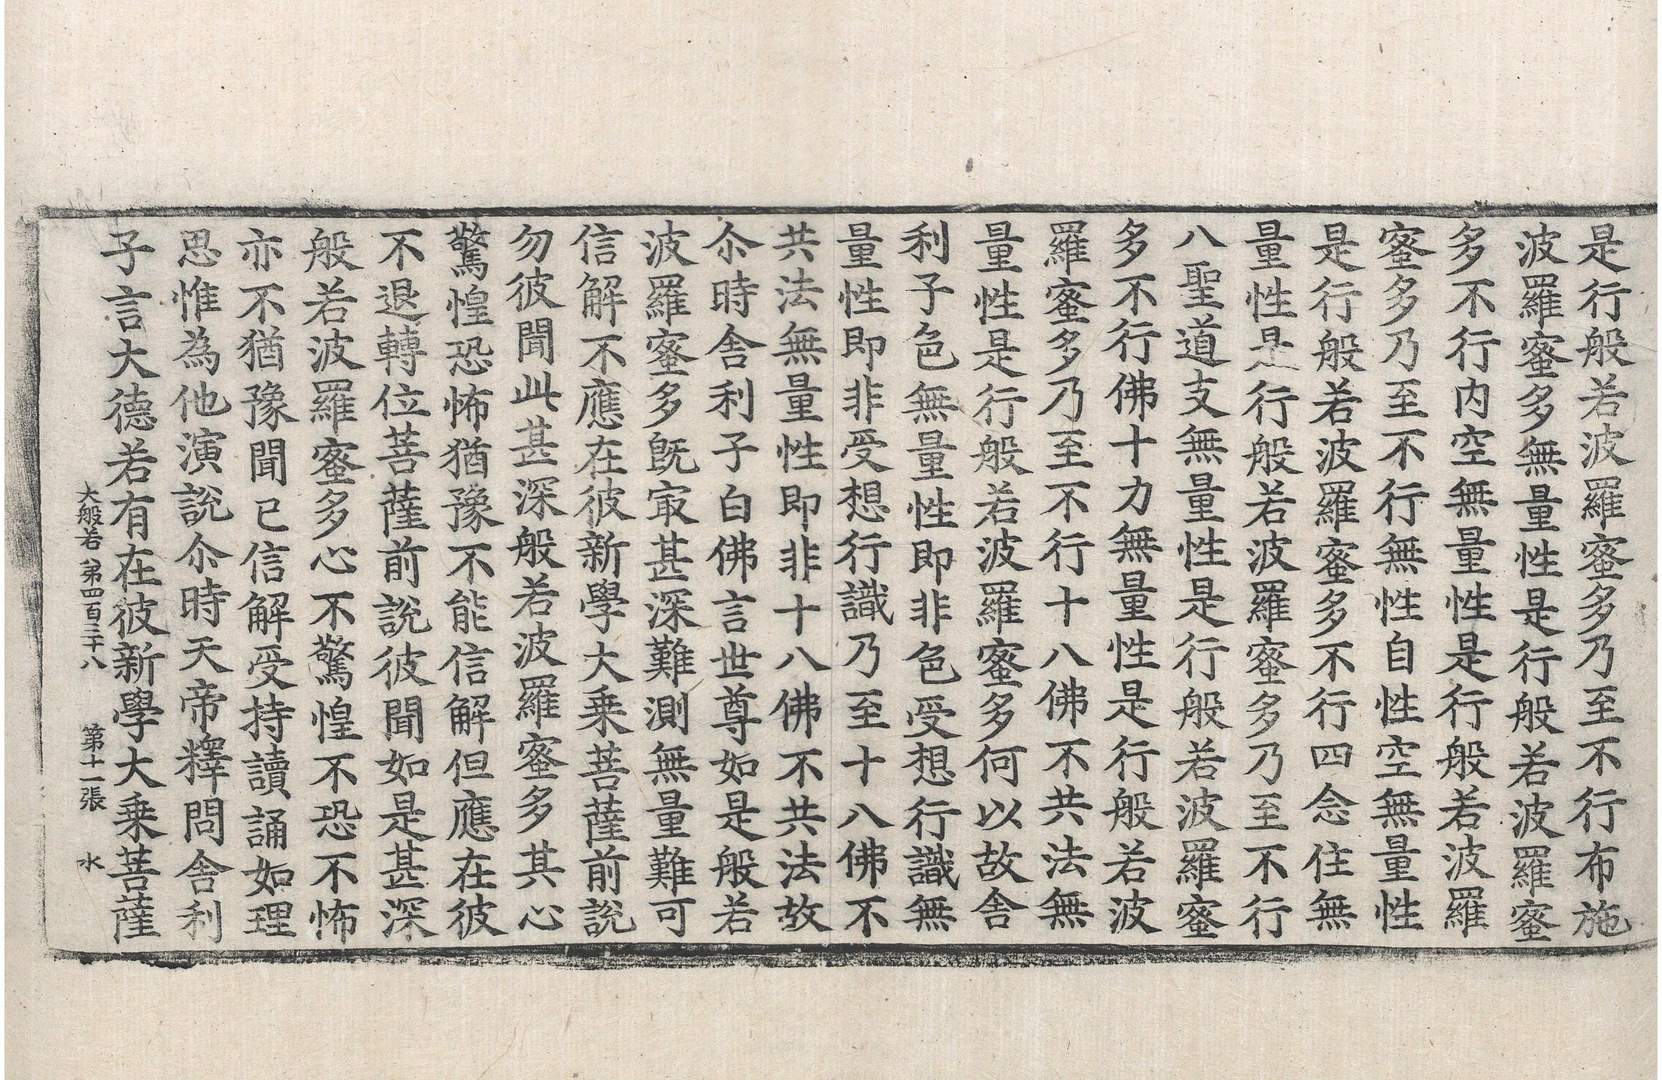 是行般若波羅蜜多乃至不行布施
波羅蜜多無量性是行般若波羅蜜
多不行内空無量性是行般若波羅
蜜多乃至不行無性自性空無量性
是行般若波羅蜜多不行四念住無
量性是行般若波羅蜜多乃至不行
八聖道支無量性是行般若波羅蜜
多不行佛十力無量性是行般若波
羅蜜多乃至不行十八佛不共法無
量性是行般若波羅蜜多何以故舍
利子色無量性即非色受想行識無
量性即非受想行識乃至十八佛不
共法無量性即非十八佛不共法故
尒時舍利子白佛言世尊如是般若
波羅蜜多既㝡甚深難測無量難可
信解不應在彼新學大乗菩薩前說
勿彼聞此甚深般若波羅蜜多其心
驚惶恐怖猶豫不能信解但應在彼
不退轉位菩薩前說彼聞如是甚深
般若波羅蜜多心不驚惶不恐不怖
亦不猶豫聞已信解受持讀誦如理
思惟為他演說尒時天帝釋問舍利
子言大德若有在彼新學大乗菩薩
大般若第四百三十八 第十一張 水